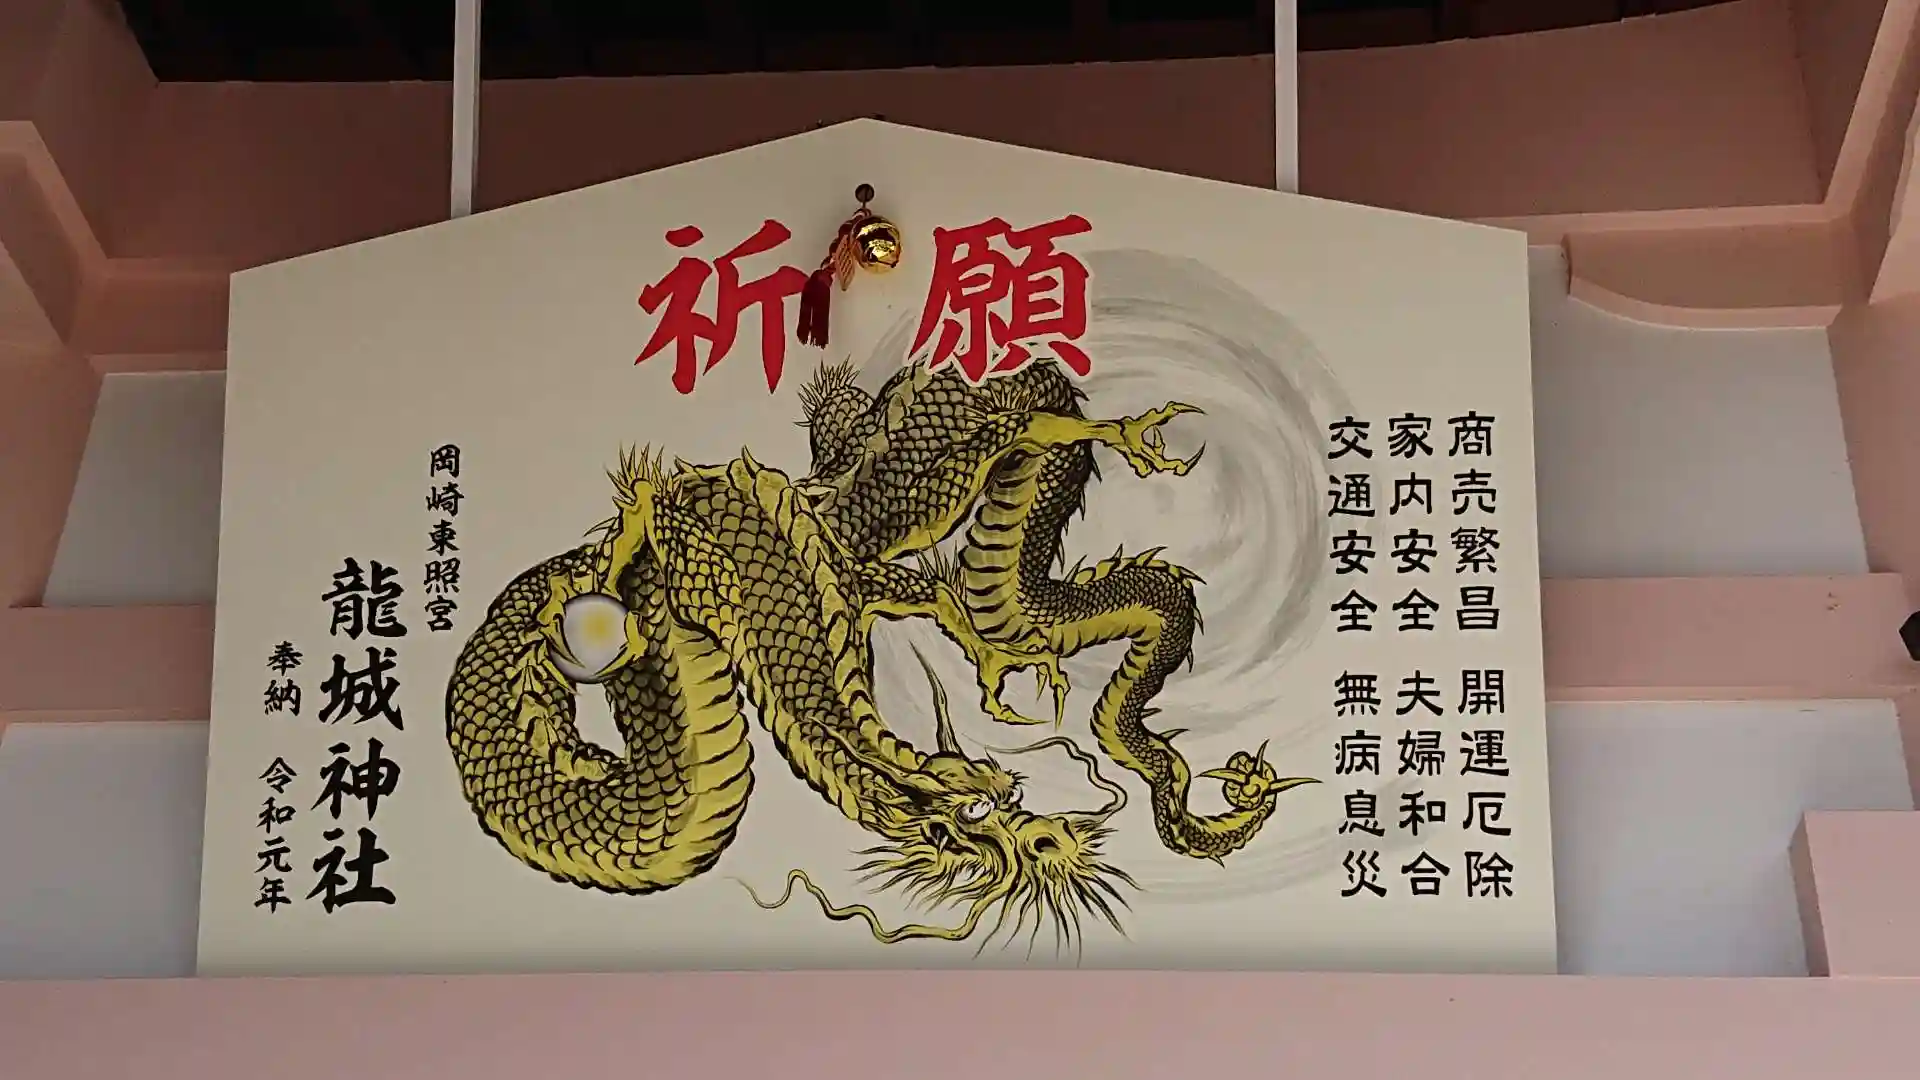 祈願
商売繁昌 開運厄除
家内安全 夫婦和合
交通安全 無病息災
岡崎東照宮
龍城神社
奉納 令和元年